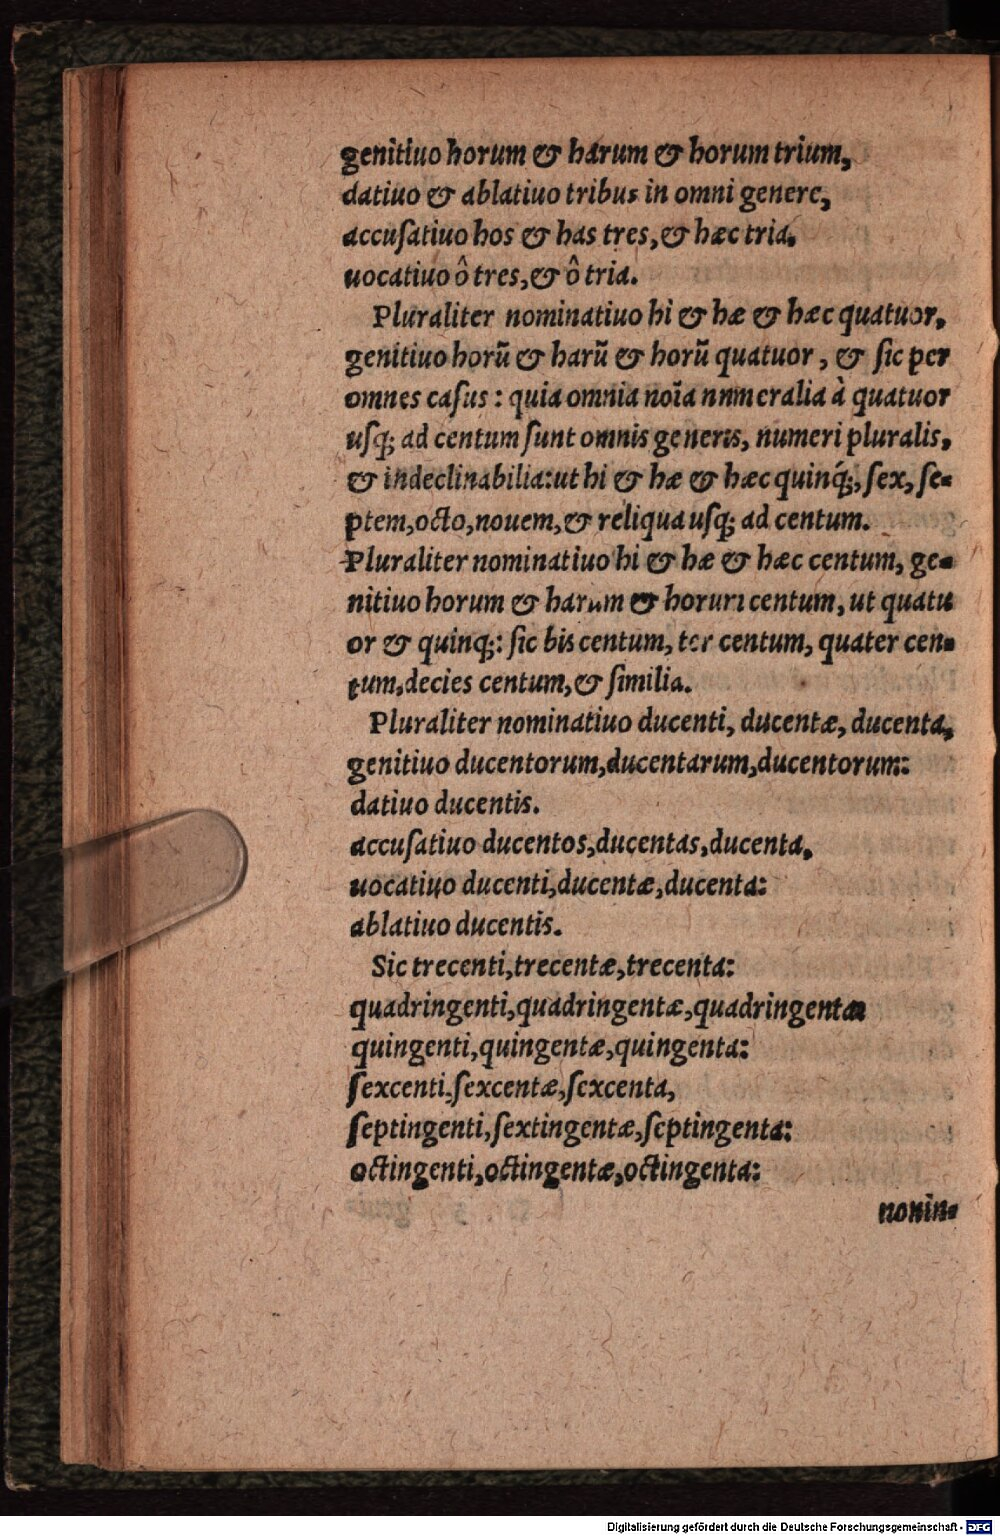 genitiuo horum & harum & horum trium,
datiuo & ablatiuo tribus in omni genere,
accuſatiuo hos & has tres,& hæc tria.
uocatiuo ô tres,& ô tria.
Pluraliter nominatiuo hi & hæ & hæc quatuor,
genitiuo horū & harū & horū quatuor, & ſic per
omnes caſus: quia omnia noīa numeralia à quatuor
uſq; ad centum ſunt omnis generis, numeri pluralis,
& indeclinabilia:ut hi & hæ & hæc quinq́;,ſex,ſe-
ptem,octo,nouem,& reliqua uſq; ad centum.
Pluraliter nominatiuo hi & hæ & hæc centum, ge-
nitiuo horum & harum & horum centum, ut quatu
or & quinq;: ſic bis centum, ter centum, quater cen-
tum,decies centum,& ſimilia.
Pluraliter nominatiuo ducenti, ducentæ, ducenta,
genitiuo ducentorum,ducentarum,ducentorum:
datiuo ducentis.
accuſatiuo ducentos,ducentas,ducenta,
uocatiuo ducenti,ducentæ,ducenta:
ablatiuo ducentis.
Sic trecenti,trecentæ,trecenta:
quadringenti,quadringentæ,quadringenta:
quingenti,quingentæ,quingenta:
ſexcenti.ſexcentæ,ſexcenta,
ſeptingenti,ſextingentæ,ſeptingenta:
octingenti,octingentæ,octingenta:
nonin-
Digitalisierung gefördert durch die Deutsche Forschungsgemeinschaft - DFG